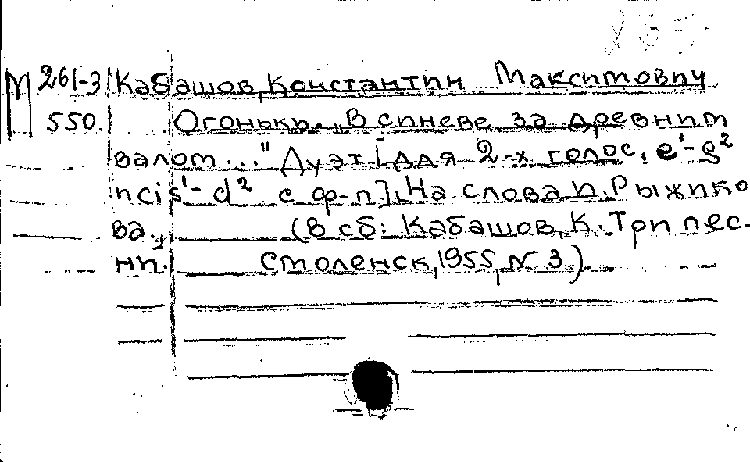 М 261-3 Кабашов, Константин Максимович
550. Огоньки. „В синеве за древним
валом..." Дуэт [для 2-х голос. e¹-g²
и cis¹-d² с ф-п]. На слова П. Рыжико
ва. (В сб: Кабашов, К. Три пес.
ни. Смоленск, 1955, № 3).